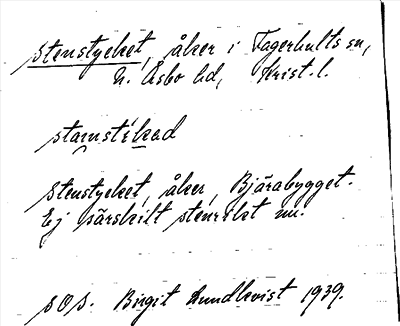 Stenstycket, åker i Fagerhults sn,
N. Åsbo hd, Krist. l.
Stenstycket, åker, Bjärabygget.
Ej särskilt stenrikt nu.
SOS. Birgit Lundkvist 1939.